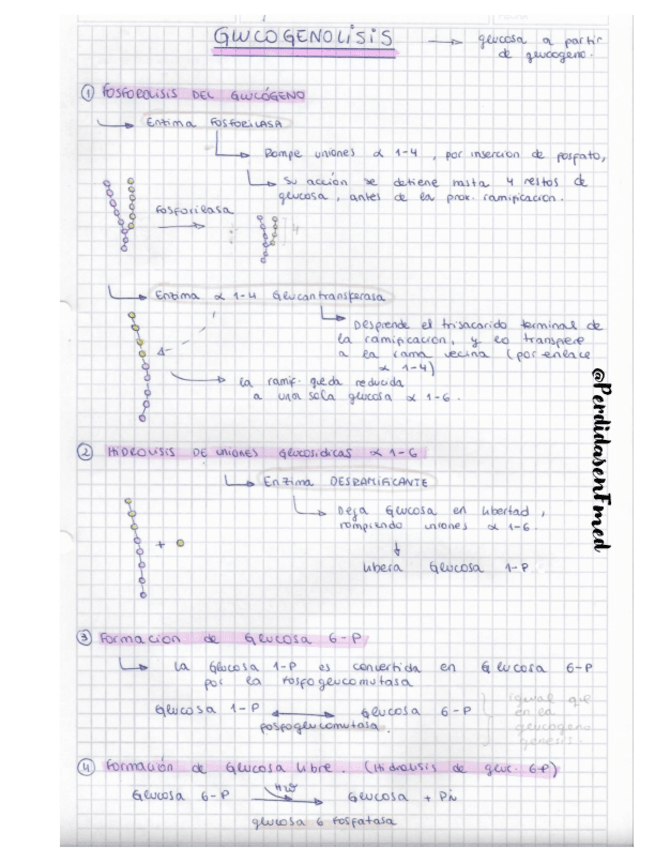 GLUCOGENOLISIS → glucosa a partir
de glucogeno.
① FOSFOROLISIS DEL GLUCÓGENO
Enzima FOSFORILASA
Rompe uniones α 1-4, por inserción de fosfato,
Su acción se detiene hasta 4 restos de
glucosa, antes de la prox. ramificacion.
Fosforilasa
4
Enzima α 1-4 Glucantransferasa
Desprende el trisacarido terminal de
la ramificacion, y lo transfiere
a la rama vecina (por enlace
α 1-4)
La ramif. queda reducida
a una sola glucosa α 1-6.
② HIDROLISIS DE uniones Glucosidicas α 1-6
Enzima DESRAMIFICANTE
Deja Glucosa en libertad,
rompiendo uniones α 1-6.
libera Glucosa 1-P
+
③ Formacion de Glucosa 6-P
La Glucosa 1-P es convertida en Glucosa 6-P
por la fosfoglucomutasa
Glucosa 1-P ⟷ Glucosa 6-P
fosfoglucomutasa.
igual que
en la
glucogeno
genesis.
④ Formación de Glucosa libre. (Hidrolisis de gluc. 6-P)
Glucosa 6-P → H2O Glucosa + Pi
glucosa 6 fosfatasa
@PerdidasenFmed